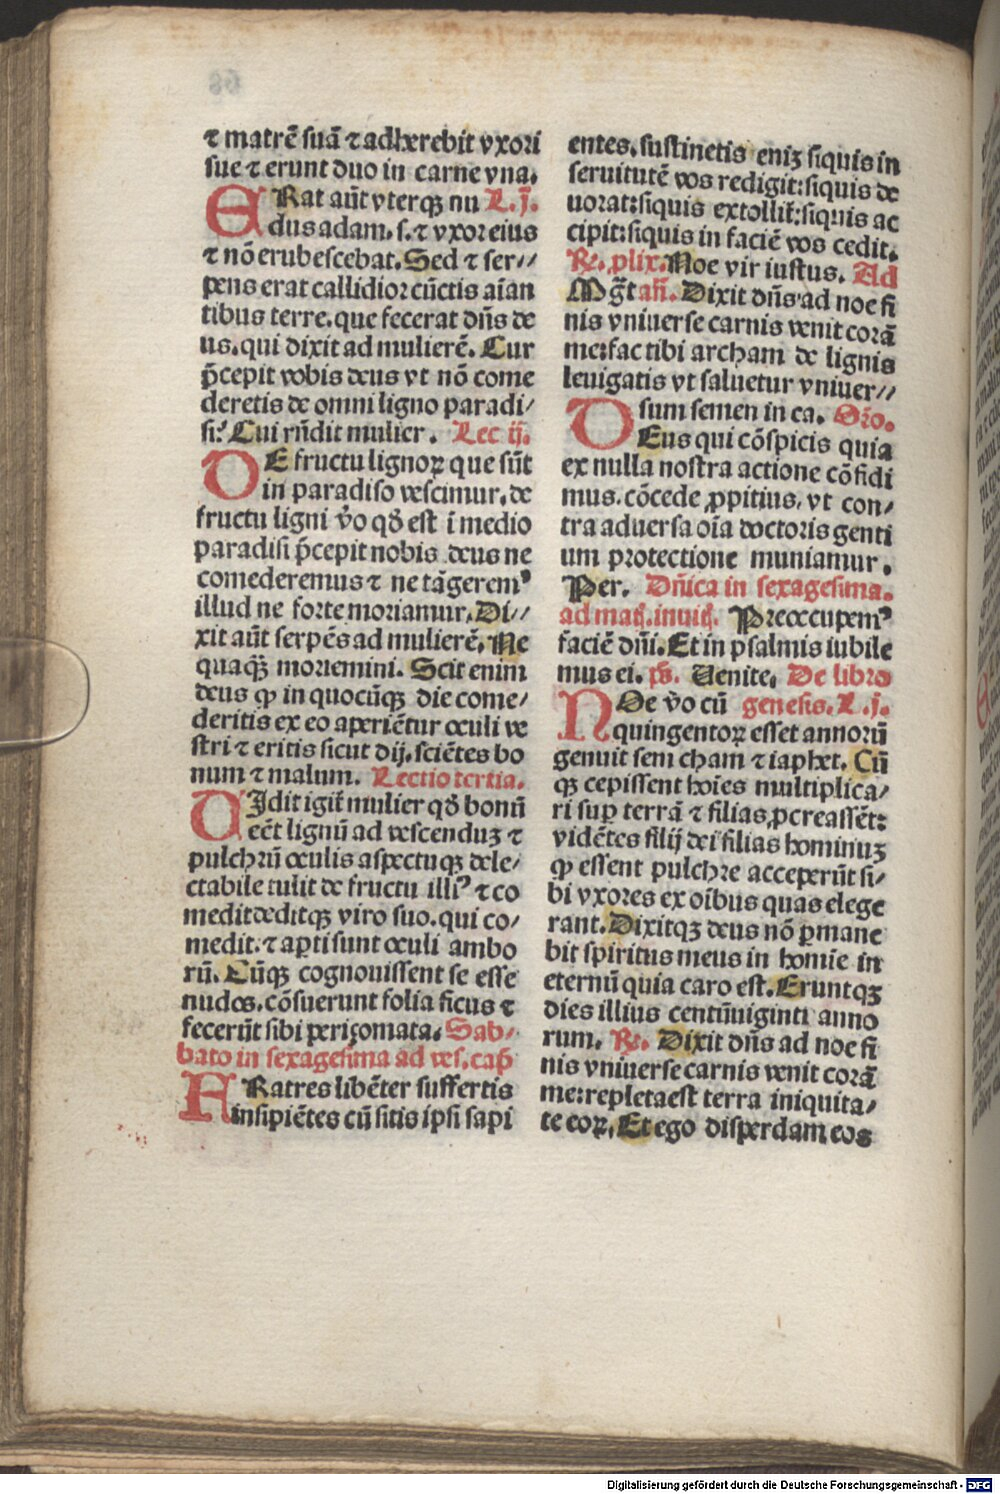 ⁊ matrē suā ⁊ adherebit vxori
sue ⁊ erunt duo in carne vna.
ERat aūt vterqꝫ nu L.j.
dus adam. s. ⁊ vxor eius
⁊ nō erubescebat. Sed ⁊ ser//
pens erat callidior cūctis aīan
tibus terre. que fecerat dn̄s de
us. qui dixit ad mulierē. Cur
p̄cepit vobis deus vt nō come
deretis de omni ligno paradi/
si? Cui rn̄dit mulier. Lec ij.
DE fructu lignoꝝ que sūt
in paradiso vescimur. de
fructu ligni v̄o qd̄ est ī medio
paradisi p̄cepit nobis deus ne
comederemus ⁊ ne tāgeremꝰ
illud ne forte moriamur. Di//
xit aūt serpēs ad mulierē. Ne
quaqꝫ moriemini. Scit enim
deus ꝙ in quocūqꝫ die come/
deritis ex eo aperiētur oculi ve
stri ⁊ eritis sicut dij. sciētes bo
num ⁊ malum. Lectio tertia.
UJdit igit̄ mulier qd̄ bonū
eēt lignū ad vescenduꝫ ⁊
pulchrū oculis aspectuqꝫ dele/
ctabile tulit de fructu illiꝰ ⁊ co
medit deditqꝫ viro suo. qui co/
medit. ⁊ apti sunt oculi ambo
rū. Cūqꝫ cognouissent se esse
nudos. cōsuerunt folia ficus ⁊
fecerūt sibi periçomata. Sab/
bato in sexagesima ad ves. cap̄
FRatres libēter suffertis
insipiētes cū sitis ipsi sapi
entes. sustinetis eniꝫ siquis in
seruitutē vos redigit: siquis de
uorat: siquis extollit̄: siquis ac
cipit: siquis in faciē vos cedit.
R̄. plix. Noe vir iustus. Ad
Mg̅t an̄. Dixit dn̄s ad noe fi
nis vniuerse carnis venit corā
me: fac tibi archam de lignis
leuigatis vt saluetur vniuer//
sum semen in ea. Oro.
DEus qui cōspicis quia
ex nulla nostra actione cōfidi
mus. cōcede ꝓpitius. vt con/
tra aduersa oīa doctoris genti
um protectione muniamur.
Per. Dn̄ica in sexagesima.
ad maꝶ. inuiꝶ. Preoccupemꝰ
faciē dn̄i. Et in psalmis iubile
mus ei. ps̄. Uenite. De libro
NOe v̄o cū genesis. L.j.
quingentoꝝ esset annorū
genuit sem cham ⁊ iaphet. Cū
qꝫ cepissent hoīes multiplica/
ri sup terrā ⁊ filias ꝓcreassēt:
vidētes filij dei filias hominuꝫ
ꝙ essent pulchre acceperūt si/
bi vxores ex oībus quas elege
rant. Dixitqꝫ deus nō ꝑmane
bit spiritus meus in homīe in
eternū quia caro est. Eruntqꝫ
dies illius centūuiginti anno
rum. R̄. Dixit dn̄s ad noe fi
nis vniuerse carnis venit corā
me: repleta est terra iniquita/
te eoꝝ. Et ego disperdam eos
Digitalisierung gefördert durch die Deutsche Forschungsgemeinschaft - DFG